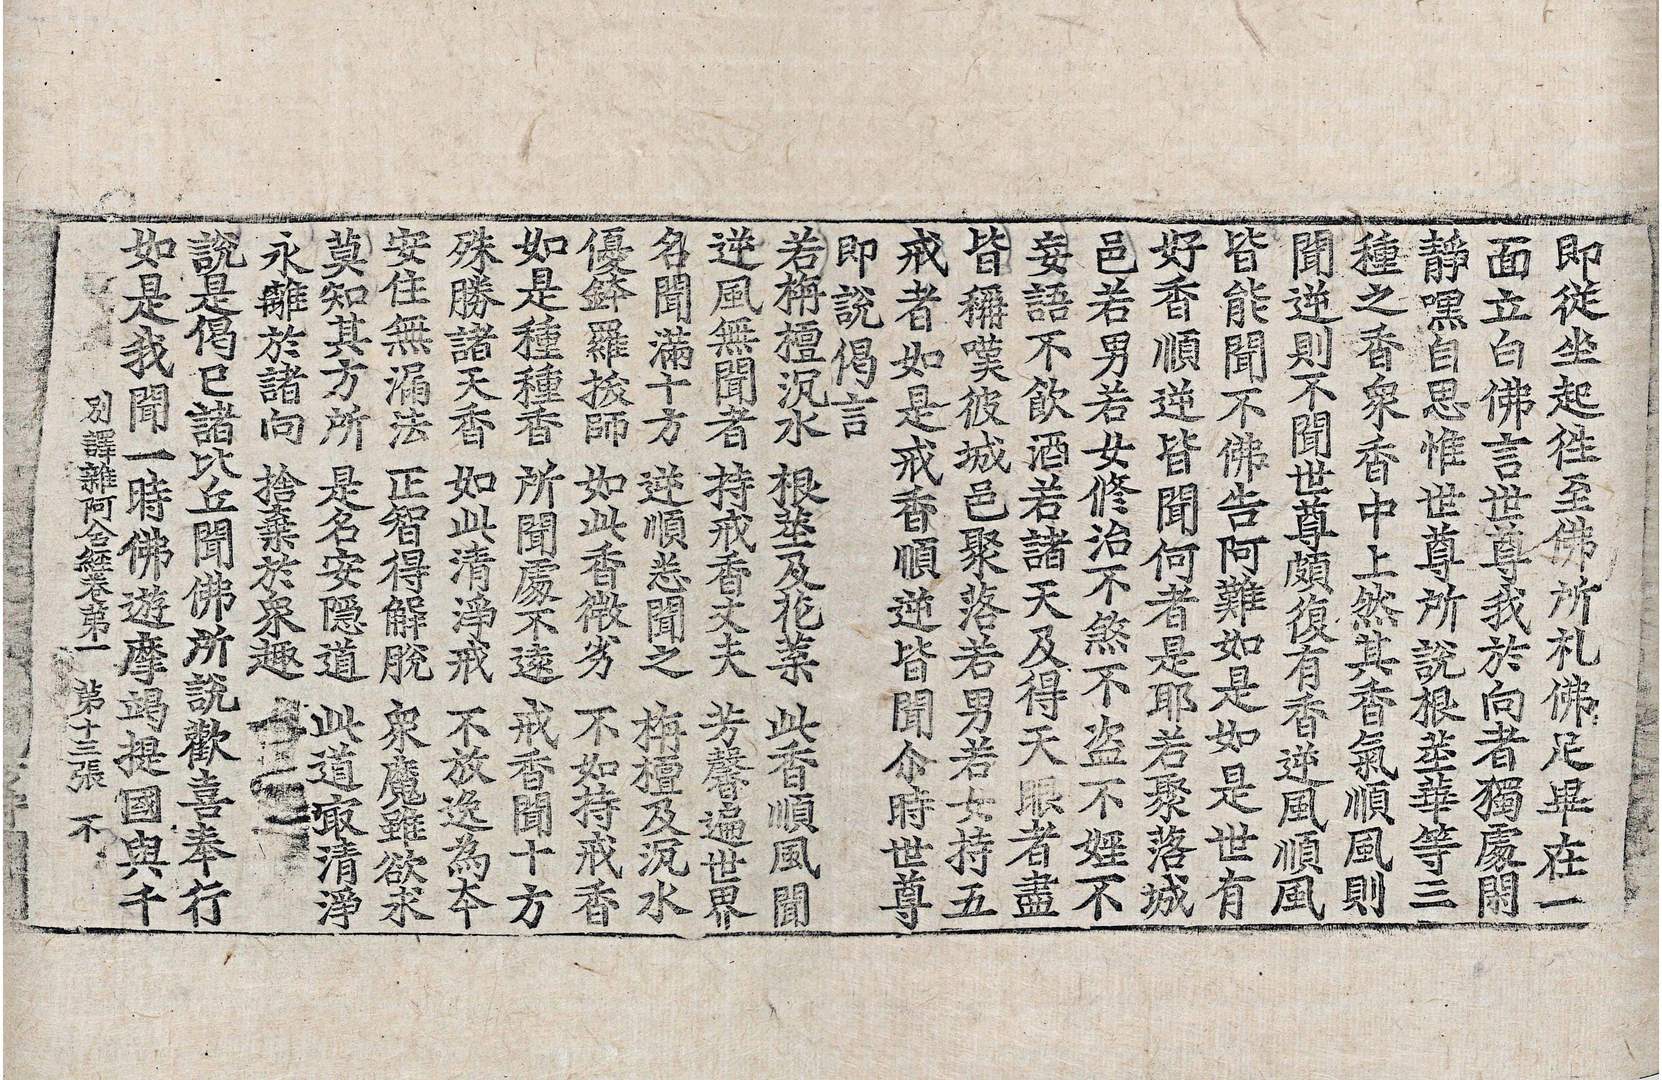 即從坐起往至佛所礼佛足畢在一
面立白佛言世尊我於向者獨處閑
靜嘿自思惟世尊所說根莖華等三
種之香衆香中上然其香氣順風則
聞逆則不聞世尊頗復有香逆風順風
皆能聞不佛告阿難如是如是世有
好香順逆皆聞何者是耶若聚落城
邑若男若女修治不煞不盜不婬不
妄語不飲酒若諸天及得天眼者盡
皆稱嘆彼城邑聚落若男若女持五
戒者如是戒香順逆皆聞尒時世尊
即說偈言
若栴檀沉水 根莖及花葉 此香順風聞
逆風無聞者 持戒香丈夫 芳馨遍世界
名聞滿十方 逆順悉聞之 栴檀及沉水
優鉢羅拔師 如此香微劣 不如持戒香
如是種種香 所聞處不遠 戒香聞十方
殊勝諸天香 如此清淨戒 不放逸為本
安住無漏法 正智得解脫 衆魔雖欲求
莫知其方所 是名安隱道 此道㝡清淨
永離於諸向 捨棄於衆趣
說是偈已諸比丘聞佛所說歡喜奉行
如是我聞一時佛遊摩竭提國與千
別譯雜阿含經卷第一 第十三張 不